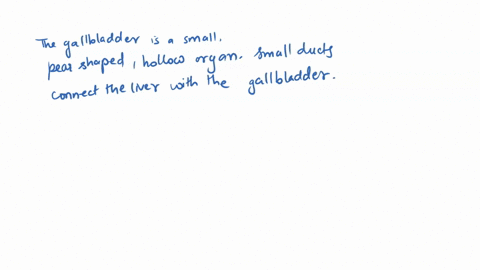 The gallbladder is a small,
pear shaped, hollow organ. Small ducts
connect the liver with the gallbladder.